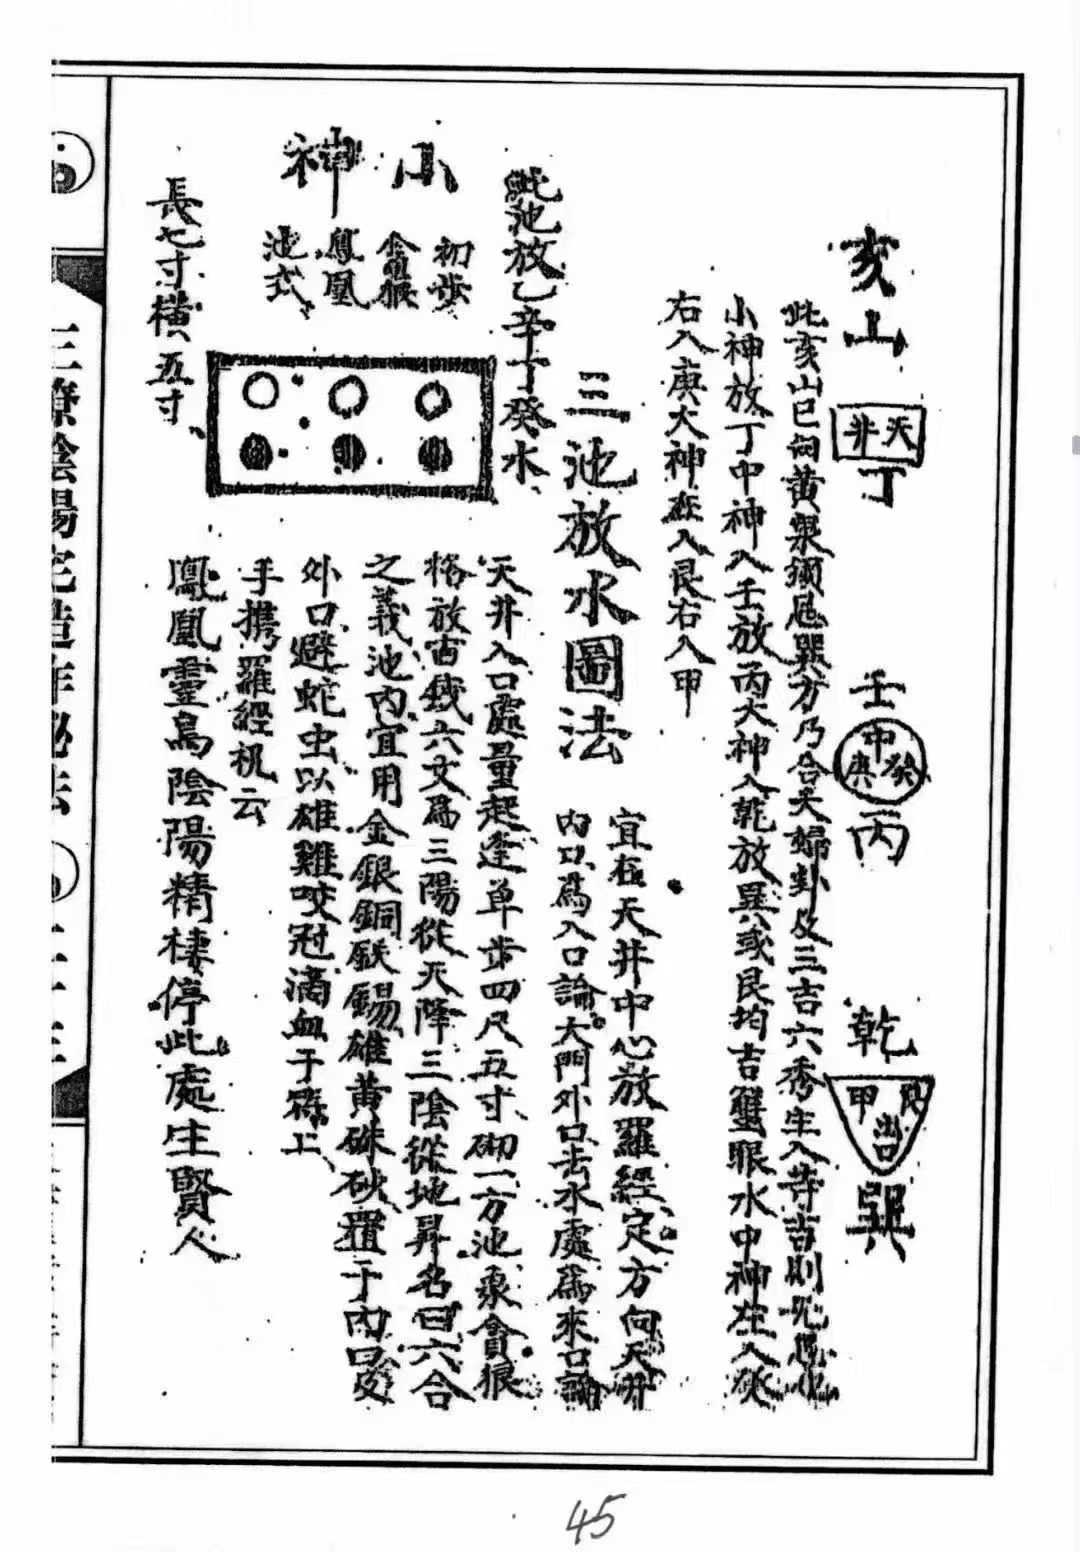 亥山
天井
丁
壬
中
癸
庚
丙
乾
艮
甲
出口
巽
此亥山巳向黃泉須忌巽方乃合夫婦卦及三吉六秀生入等吉則
小神放丁中神入壬放丙大神入乾放巽或艮均吉蟹眼水中神左入癸
右入庚大神左入艮右入甲
三池放水圖法
宜在天井中心放羅經定方向天井
內口為入口論大門外口去水處為來口論
此池放乙辛丁癸水
天井入口處量起逢單步四尺五寸砌一方池泵貪狼
格放古錢六文為三陽從天降三陰從地昇名曰六合
之義池內宜用金銀銅鉄錫雄黃硃砂置于內口及
外口避蛇虫以雄雞咬冠滴血于磚上
手携羅經机云
鳳凰靈鳥陰陽精棲停此處生賢人
小神
初步
貪狼
鳳凰
池式
長七寸橫五寸
三寮陰陽宅造作秘法
45